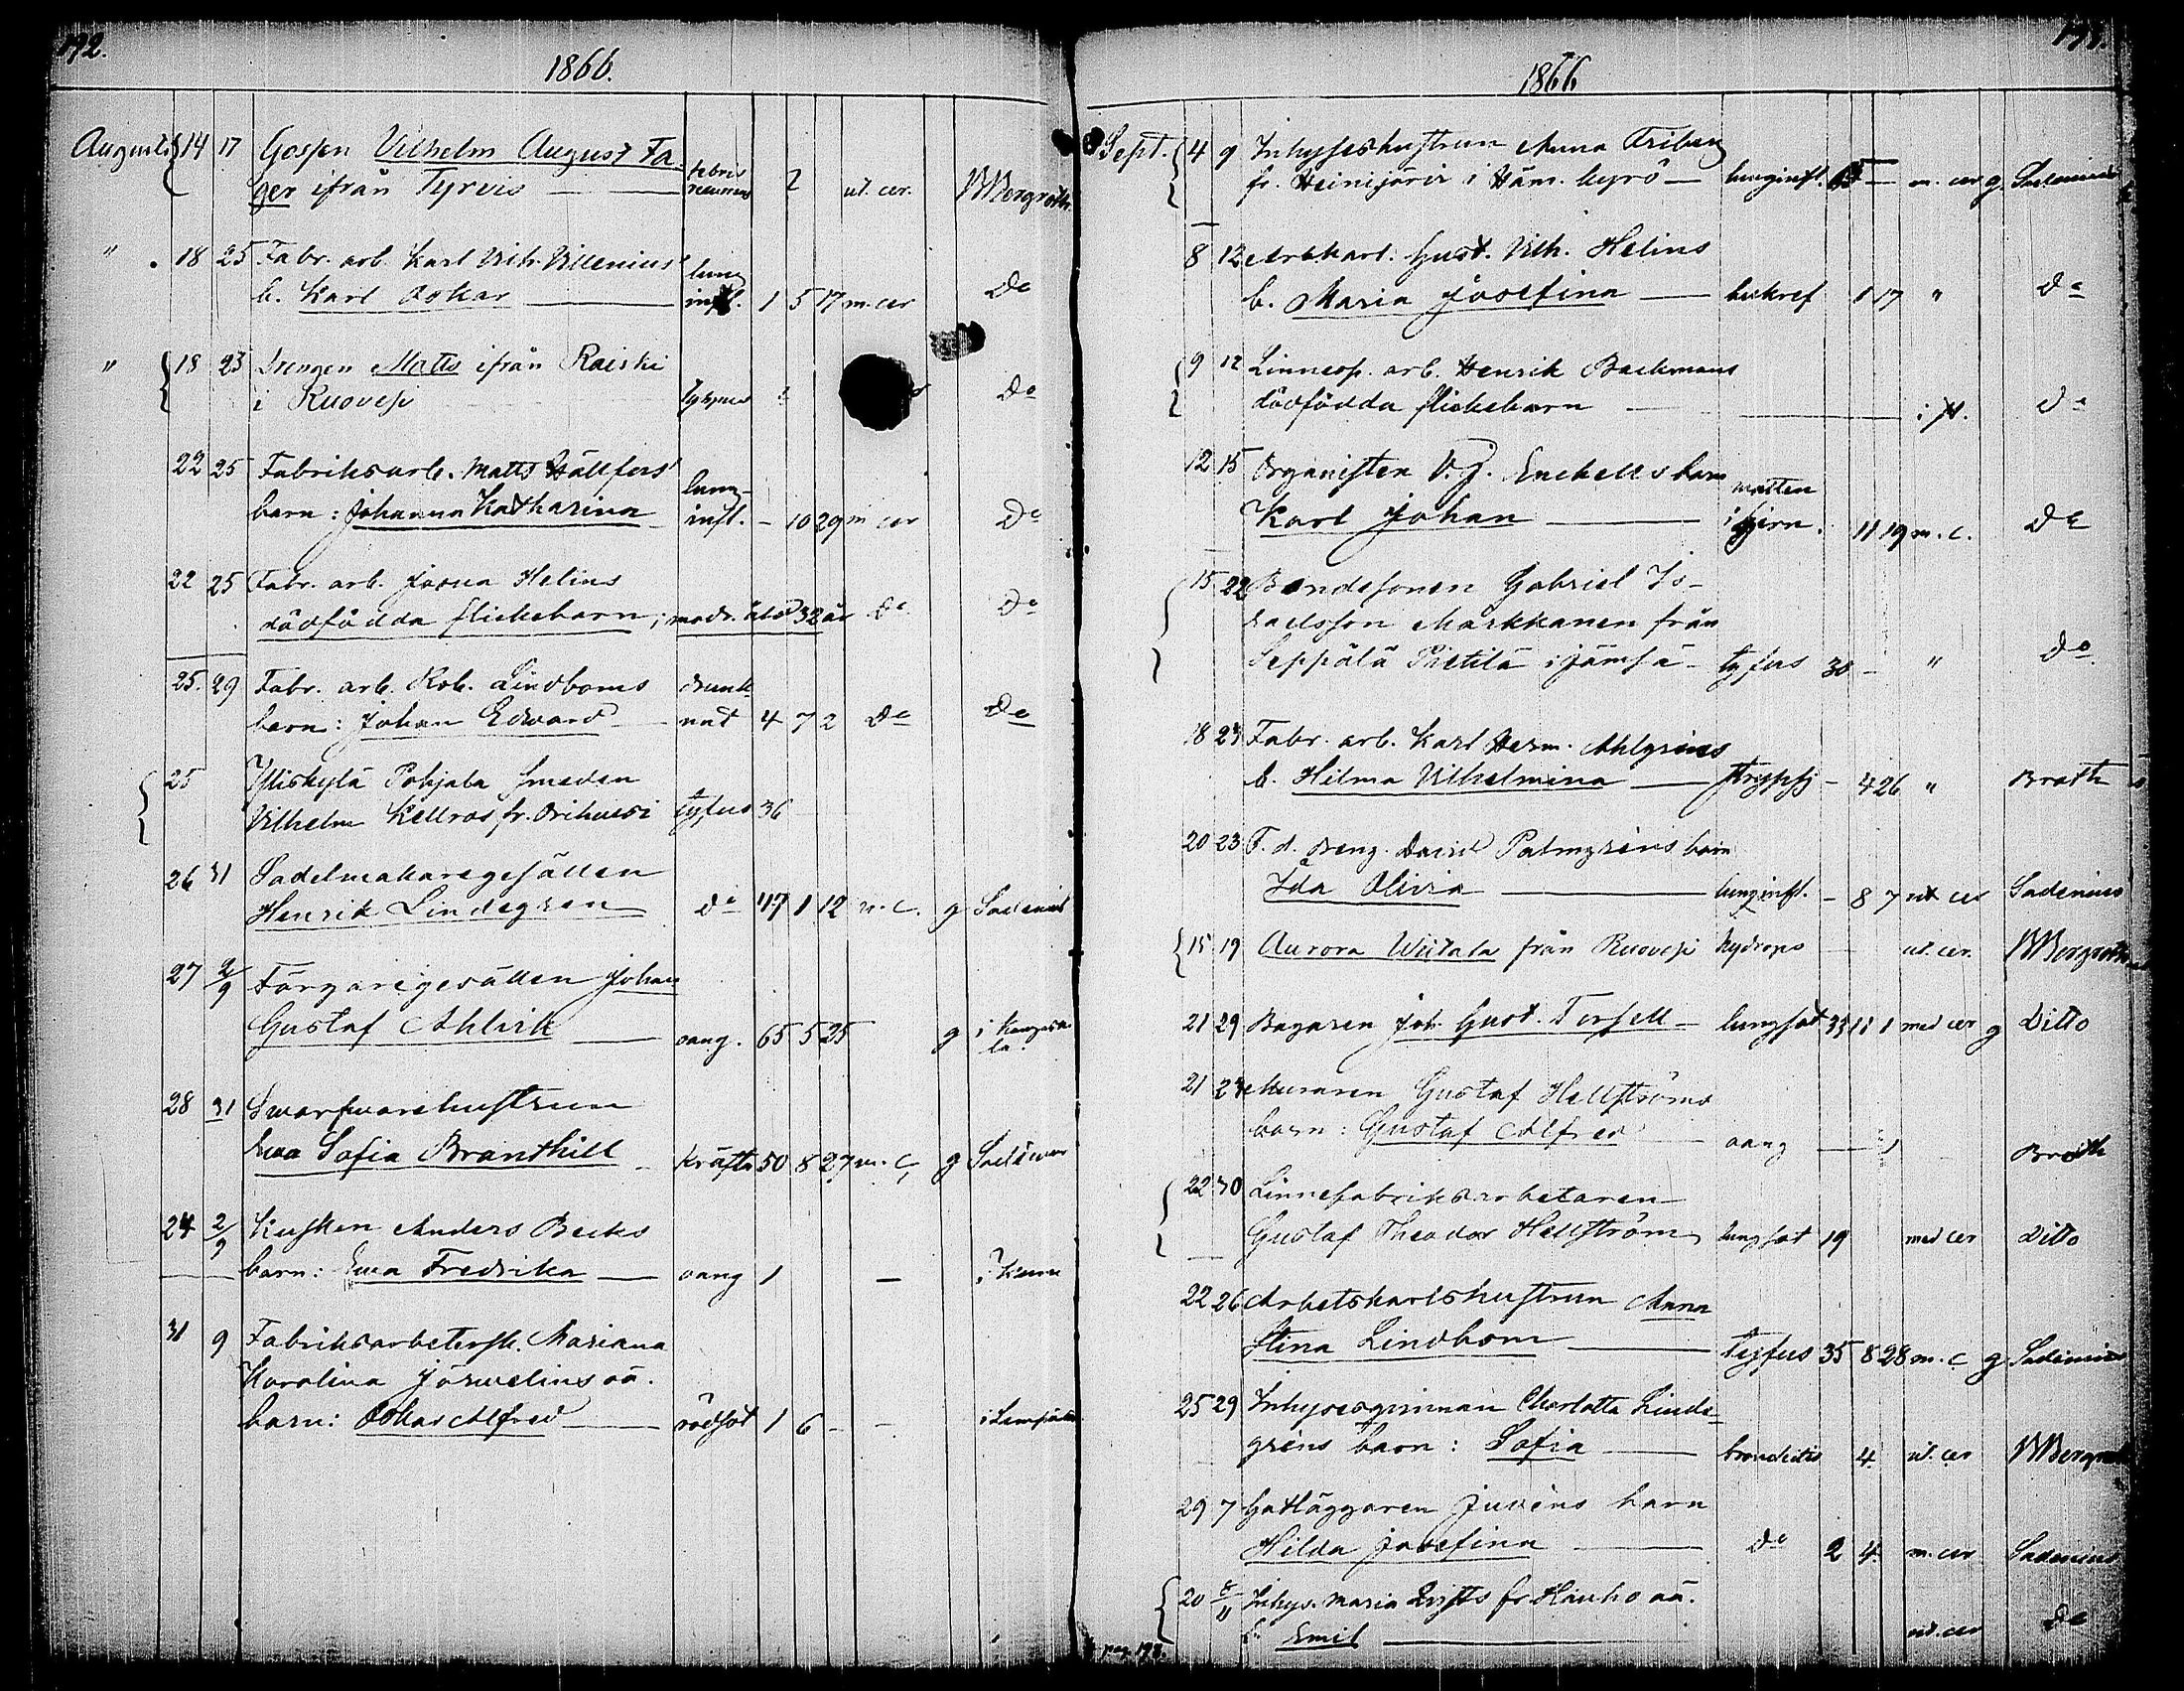 192.
1866.
Augusti 14 17 Gossen Vilhelm August Fa-
ger ifrån Tyrvis febris recurrens 2 ut. cer. Bergroth
" 18 25 Fabr. arb. Karl Vilh. Villenius
b. Karl Oskar lung infl. 1 5 17 m. cer Do
" 18 23 Drengen Matts ifrån Raiski
i Ruovesi Do
22 25 Fabriksarb. Matts Hällfors
barn: Johanna Katharina lung- infl. - 10 29 m cer Do
22 25 Fabr. arb. Josua Helins
dödfödda flickebarn; modr. ålder 32 år Do Do
25. 29 Fabr. arb. Rob. Lindboms
barn: Johan Edward drunk- nat 4 7 2 Do Do
25 Yliskylä Pohjala smeden
Vilhelm Kellros fr. Orihvesi tyfus 36
26 31 Sadelmakaregesällen
Henrik Lindegren Do 47 1 12 m. c. g Sadenius
27 2/9 Färgaregesällen Johan
Gustaf Ahlvik oang. 65 5 25 g i Kangasa- la.
28 31 Swarfwarehustrun
Ewa Sofia Branthill kräfta 50 8 27 m. c, g Sadenius
24 2/9 Kusken Anders Becks
barn: Ewa Fredrika oang 1 –
31 9 Fabriksarbetersk. Mariana
Karolina Järwelins oä.
barn: Oskar Alfred rödsot 1 6 - -
1866
Sept. 4 9 Inhyseshustrun Anna Friberg
fr. Heinijärvi i Häm. kyrö lunginfl. m. cer g Sadenius
8 12 Arb karl. Gust. Vilh. Helins
b. Maria Josefina 1 17 " Do
9 12 Linnesp. arb. Henrik Backmans
dödfödda flickebarn Do
12 15 Organisten V. J. Enckells barn
Karl Johan watten i hjern. 11 19 m. c. Do
15 22 Bondesonen Gabriel Is-
raelsson Markkanen från
Seppälä Pietilä i Jämsä tyfus 30 - " Do
18 23 Fabr. arb. Karl Herm. Ahlgrens
b. Hilma Vilhelmina strypsj - 4 26 " Broth
20 23 F. d. Dreng. David Palmgrens barn
Ida Olivia lunginfl. - 8 7 ut cer Sadenius
15 19 Aurora Wiitala från Ruovesi hydrops ut. cer. Bergroth
21 29 Bagaren Joh. Gust. Torsell lungsot 33 11 1 med cer g Ditto
21 24 Muraren Gustaf Hellströms
barn: Gustaf Alfred oang 1 Broth
22 30 Linnefabriksarbetaren
Gustaf Theodor Hellström lungsot 19 med cer Ditto
22 26 Arbetskarlshustrun Anna
Stina Lindbom tyfus 35 8 28 m. c g Sadenius
25 29 Inhysesqvinnan Charlotta Linde-
grens barn: Sofia bronchitis 4 ut. cer Bergroth
29 7 Gatläggaren Juvens barn
Hilda Josefina Do 2 4 m. cer Sadenius
20 Inhys. Maria Qvists fr. Hauho oä.
b. Emil ut. cer Do